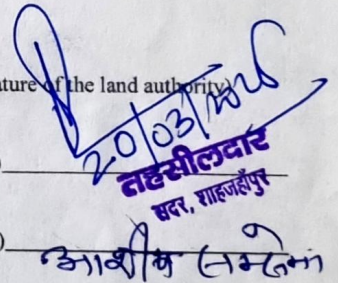 ture of the land authority)
20/03/2025
तहसीलदार
सदर, शाहजहाँपुर
)
आशीष सक्सेना